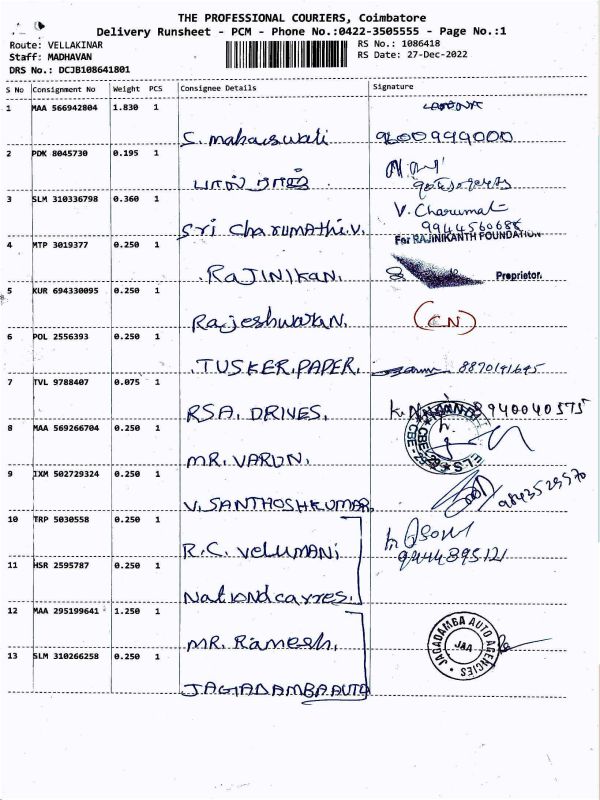 THE PROFESSIONAL COURIERS, Coimbatore
Delivery Runsheet - PCM - Phone No.:0422-3505555 - Page No.:1
Route: VELLAKINAR
RS No.: 1086418
Staff: MADHAVAN
RS Date: 27-Dec-2022
DRS No.: DCJB108641801
S No Consignment No Weight PCS Consignee Details Signature
1 MAA 566942804 1.830 1
S. maheswati 9600999000
2 PDK 8045730 0.195 1
பால் ராஜ்
3 SLM 310336798 0.360 1 V. Charumat
Sri Charumathi.V. 9944560685
4 MTP 3019377 0.250 1 For RAJINIKANTH FOUNDATION
RAJINIKAN. Proprietor.
5 KUR 694330095 0.250 1
Rajeshwaran. (CN)
6 POL 2556393 0.250 1
TUSKER.PAPER. 8870191695
7 TVL 9788407 0.075 1
RSA. DRIVES. 8940040575
8 MAA 569266704 0.250 1
MR. VARUN.
9 IXM 502729324 0.250 1
V. SANTHOSHKUMAR 9843525570
10 TRP 5030558 0.250 1
R.C. Velumani 9444895121
11 HSR 2595787 0.250 1
12 MAA 295199641 1.250 1
MR. Ramesh.
13 SLM 310266258 0.250 1 JAGADAMBA AUTO AGENCIES JAA
JAGADAMBA.AUTO